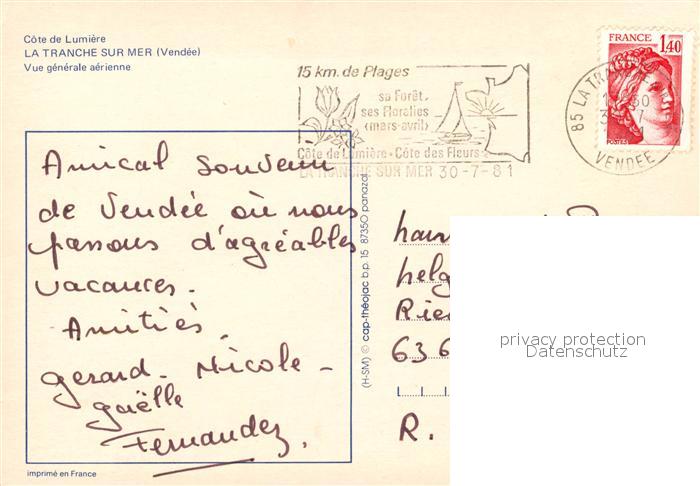 Côte de Lumière
LA TRANCHE SUR MER (Vendée)
Vue générale aérienne
15 km. de Plages
sa Forêt
ses Floralies
(mars-avril)
Côte de Lumière - Côte des Fleurs
LA TRANCHE SUR MER 30-7-81
FRANCE
1,40
POSTES
85 LA TRA
VENDEE
Amical souvenir
de Vendée où nous
passons d'agréables
vacances.
Amitiés.
Gerard. Nicole -
gaëlle
Fernandez.
(H-SM) © cap-théojac b.p. 15 87350 panazol
helg
Rie
636
R.
privacy protection
Datenschutz
imprimé en France